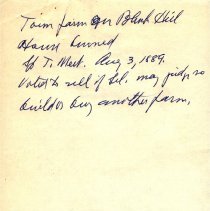 Town farm on Blush Hill
House burned
Sp T. Meet. Aug 3, 1889.
Voted to sell if Sel. may judge, so
build or buy another farm,